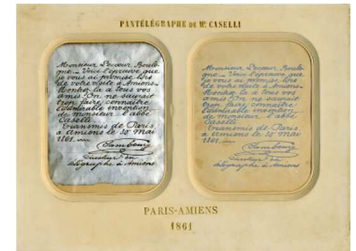 PANTÉLÉGRAPHE DE Mr. CASELLI
Monsieur
que
je vous ai promise lors
de votre visite à Amiens.
Montrez la à tous vos
amis. On ne saurait
trop faire connaître
l'admirable invention
de monsieur l'abbé
Caselli.
Transmis de Paris
à Amiens le 10 Mai
1861.
télégraphe à Amiens
Monsieur
que
je vous ai promise lors
de votre visite à Amiens.
Montrez la à tous vos
amis. On ne saurait
trop faire connaître
l'admirable invention
de monsieur l'abbé
Caselli.
Transmis de Paris
à Amiens le 10 Mai
1861.
télégraphe à Amiens
PARIS-AMIENS
1861